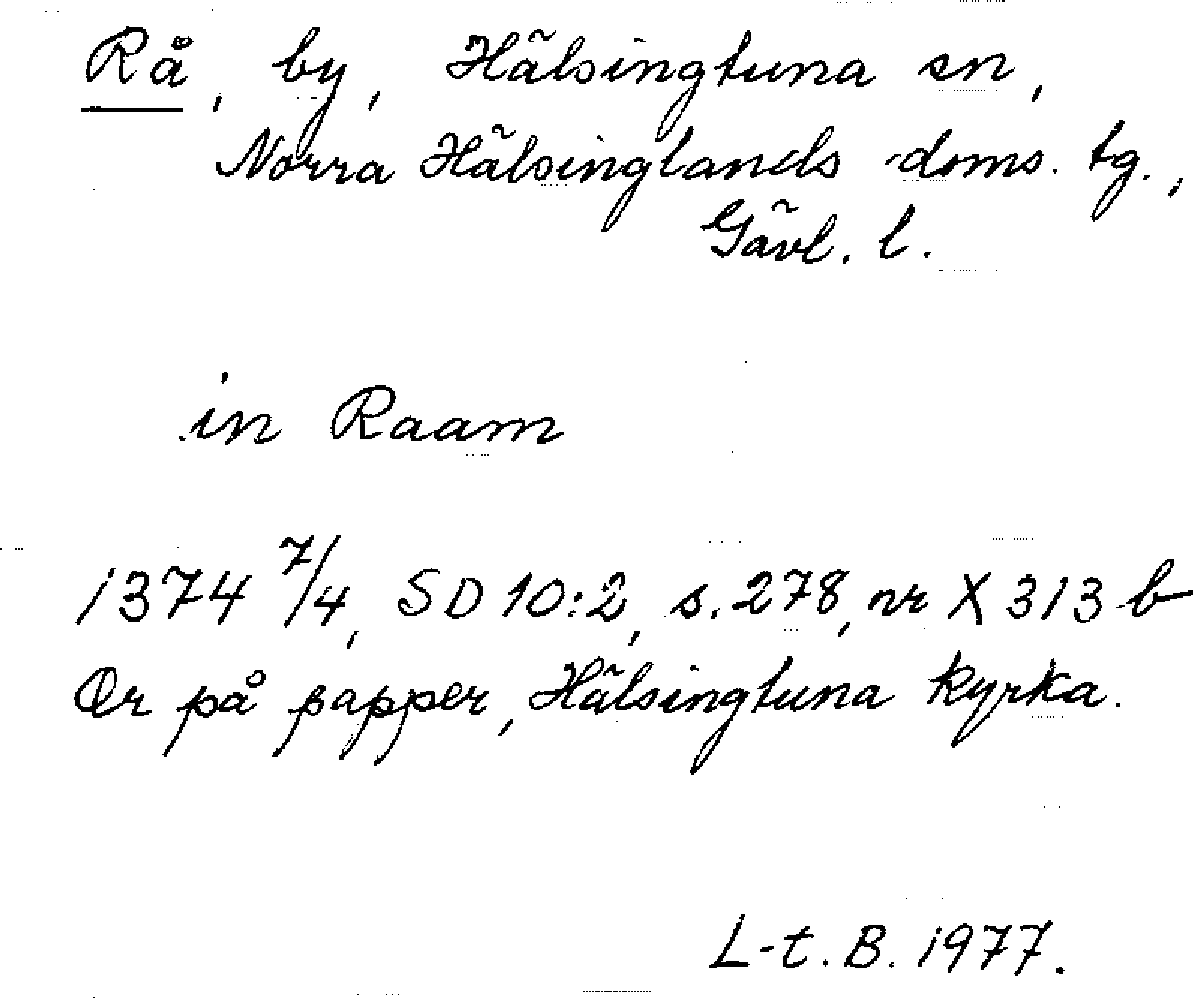 Rå, by, Hälsingtuna sn,
Norra Hälsinglands doms. tg.,
Gävl. l.
in Raam
1374 7/4, SD 10:2, s. 278, nr X 313 b
Or på papper, Hälsingtuna kyrka.
L-t. B. 1977.